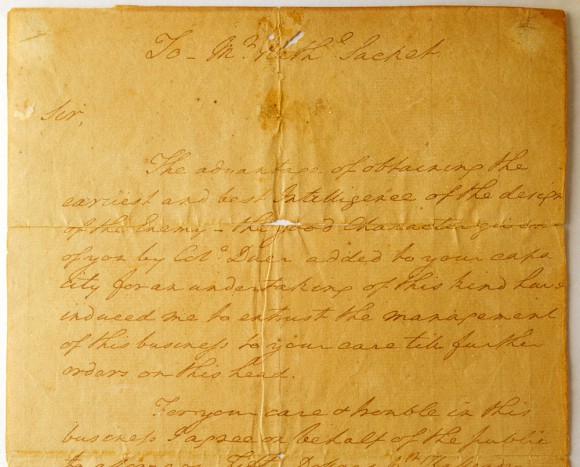 To - Mr. Nathl. Sacket
Sir,
The advantage of obtaining the
earliest and best Intelligence of the design
of the Enemy - the good Character given
of you by Colo. Duer added to your capa
city for an undertaking of this kind have
induced me to entrust the management
of this business to your care till further
orders on this head.
For your care & trouble in this
business I agree on behalf of the public
to Dollars